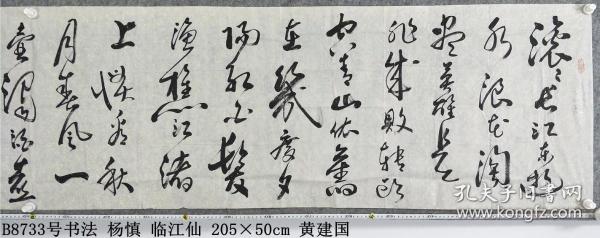 滚々长江东逝
水浪花淘
盡英雄是
非成败转头
空青山依舊
在幾度夕
阳红白髮
渔樵江渚
上惯看秋
月春风一
壶濁酒喜
孔夫子旧书网
www.kongfz.com
B8733号书法 杨慎 临江仙 205×50cm 黄建国